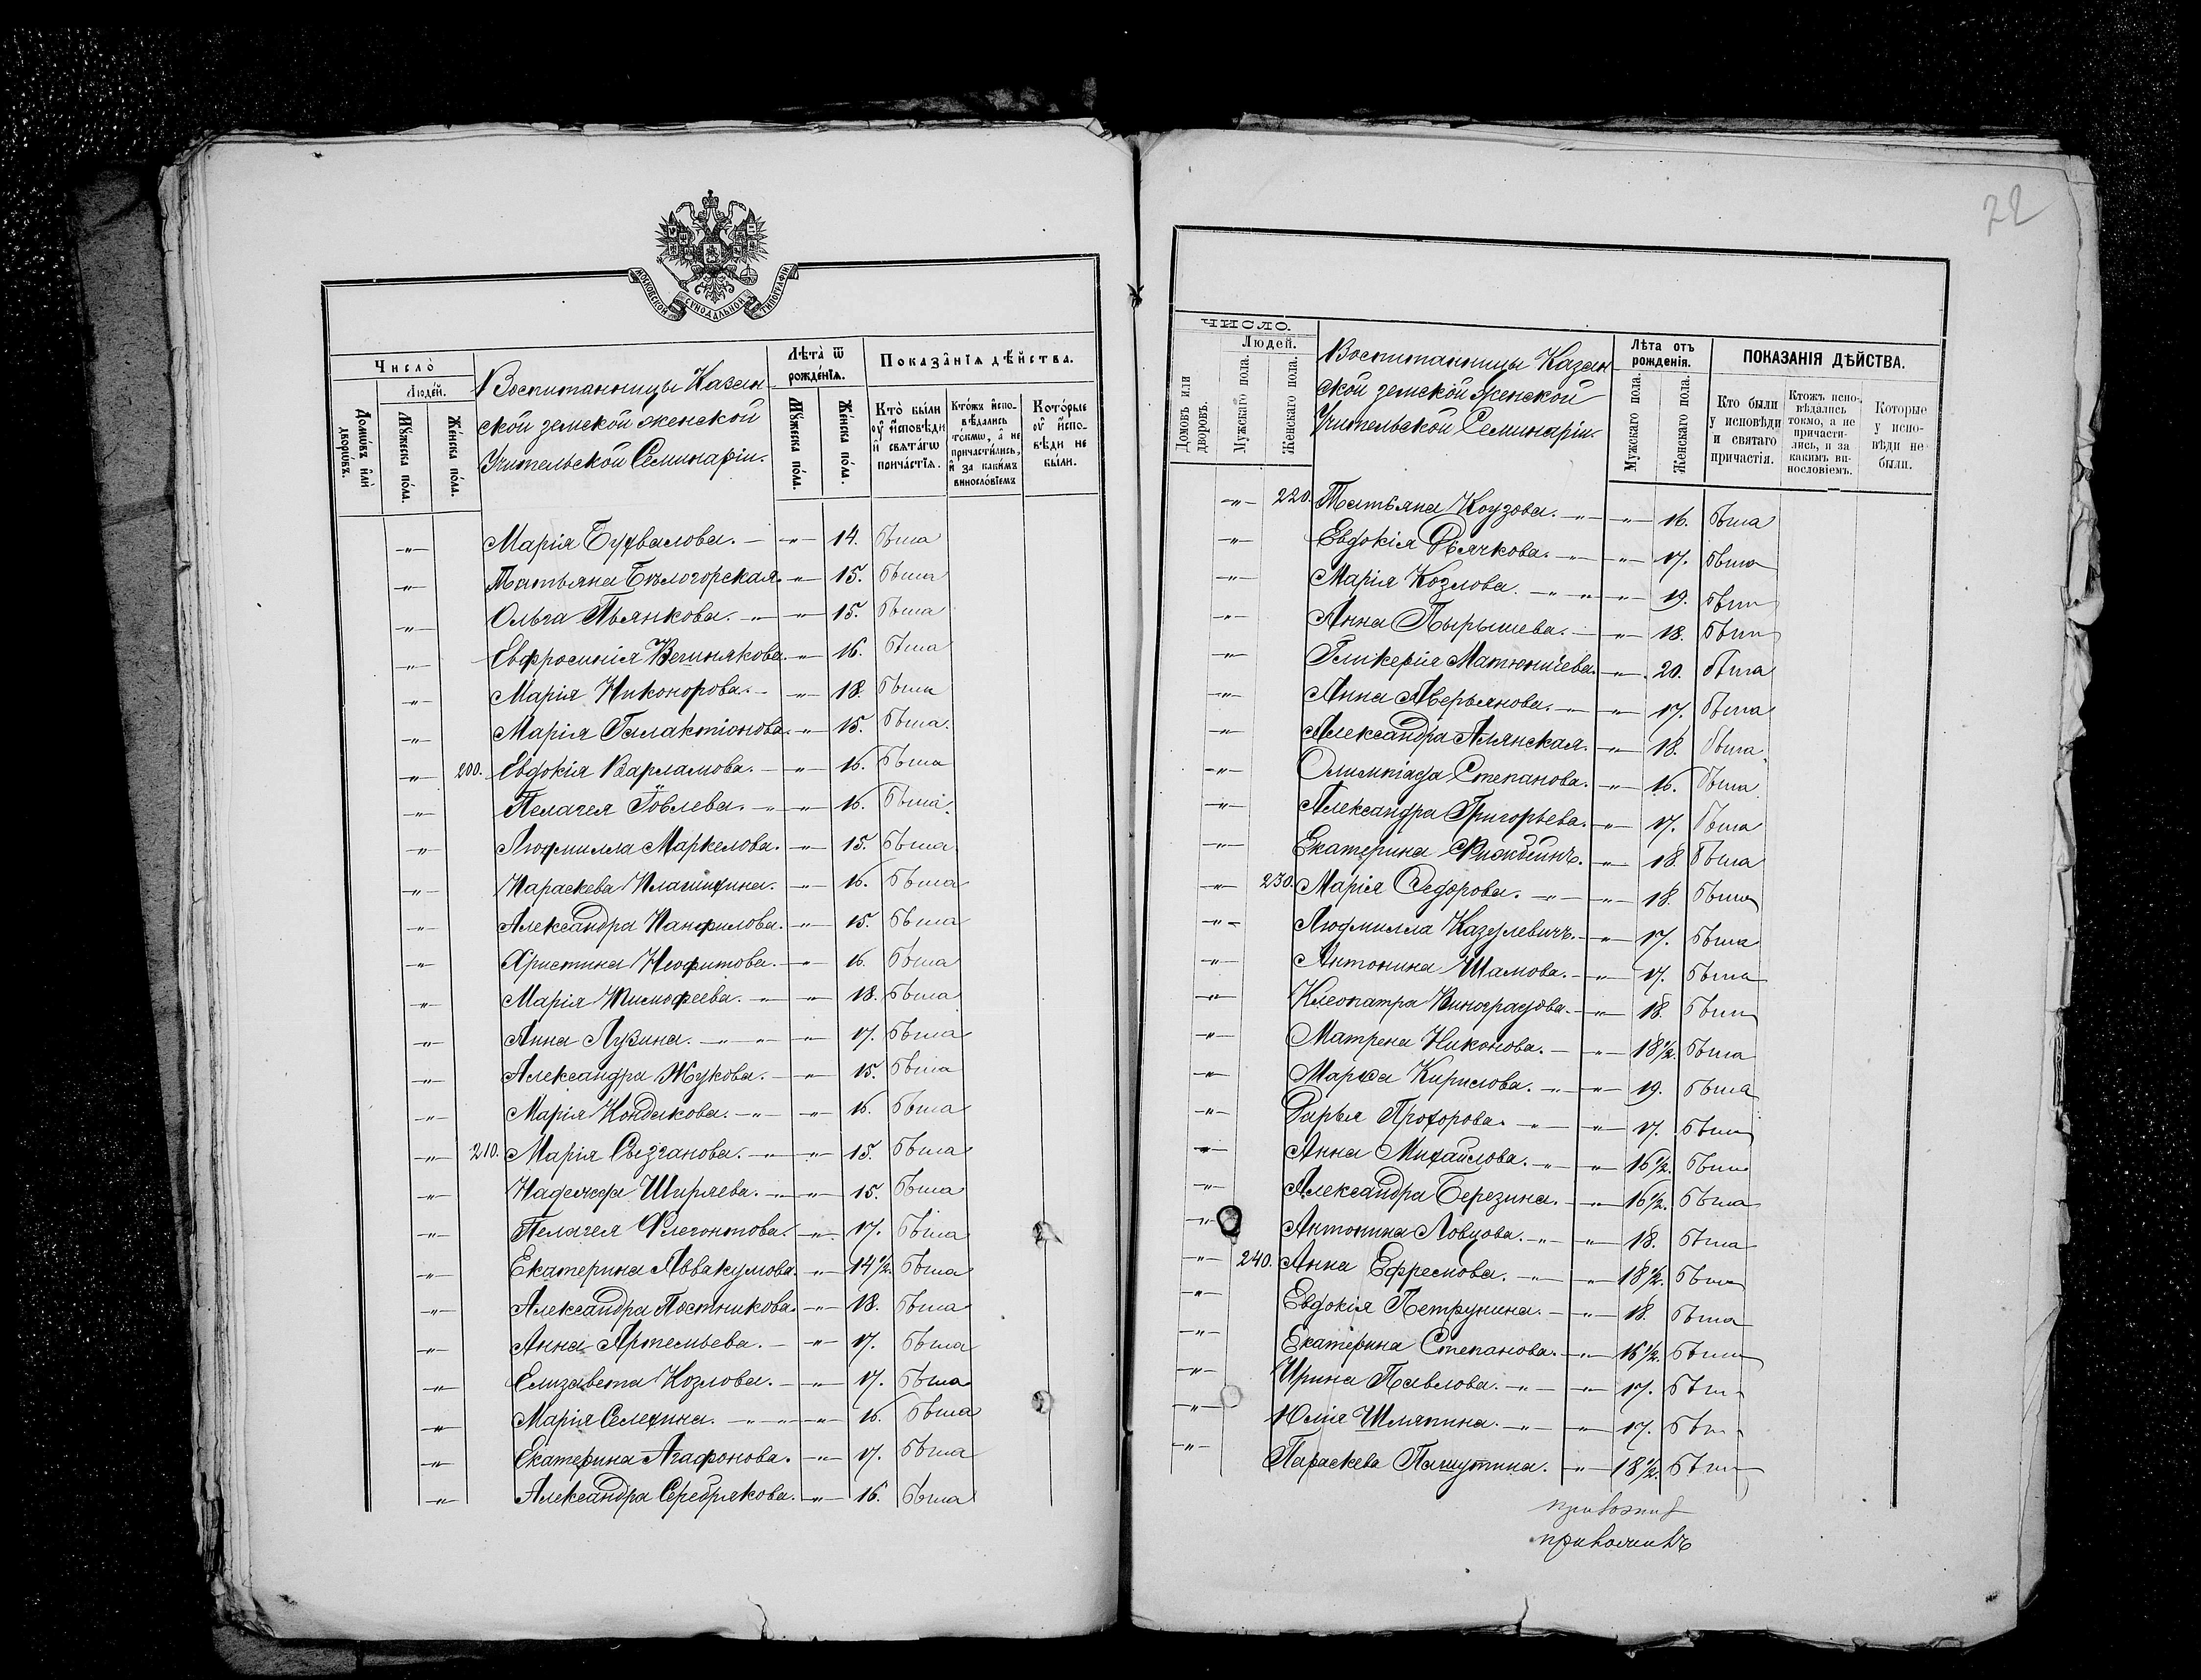 22
МОСКОВСКОЙ СѴНОДАЛЬНОЙ ТИПОГРАФІИ
Число̀
Люде́й.
Домѡ́въ и҆лѝ дворѡ́въ.
Мꙋ́жеска по́ла.
Же́нска по́ла.
Воспитанницы Казан
ской земской женской
Учительской Семинаріи.
Лѣта̀ ѿ рожде́нїѧ.
Мꙋ́жеска по́ла.
Же́нска по́ла.
Показа̑нїѧ дѣ́йства.
Кто̀ бы́ли оу҆ и҆́сповѣди и҆ свѧта́гѡ прича́стїѧ.
Кто́жъ и҆спо-вѣ́дались то́кмѡ, а҆ не причасти́лись, и҆ за каки́мъ виносло́вїемъ
Кото́рые оу҆ и҆́спо-вѣди не бы́ли.
-„- Марія Бухвалова. - -„- 14. Бѣша
-„- Татьяна Бѣлогорская. -„- 15. Бѣша
-„- Ольга Пьянкова. -„- -„- 15. Бѣша
-„- Евфросинія -„- 16. Бѣша
-„- Марія Никонорова. - -„- 18. Бѣша
-„- Марія Галактіонова. -„- 15. Бѣша.
-„- 200. Евдокія Варламова. - -„- 16. Бѣша
-„- Пелагея Іовлева. -„- -„- 16. Бѣша.
-„- Людмилла Маркелова. -„- 15. Бѣша
-„- Параскева -„- 16. Бѣша
-„- Александра Панфилова. -„- 15. Бѣша
-„- Христина Неофитова. -„- 16. Бѣша
-„- Марія Тимофеева. -„- -„- 18. Бѣша
-„- Анна Лузина. -„- -„- -„- 17. Бѣша
-„- Александра Жукова. - -„- 15. Бѣша
-„- Марія Кондакова. -„- -„- 16. Бѣша
-„- 210. Марія Сызганова. -„- -„- 15. Бѣша
-„- Надежда Ширяева. -„- -„- 15. Бѣша
-„- Пелагея Флегонтова. -„- 17. Бѣша
-„- Екатерина Аввакумова. -„- 14 1/2. Бѣша
-„- Александра Постникова. -„- 18. Бѣша
-„- Анна Артемьева. - -„- 17. Бѣша
-„- Елизавета Козлова. - -„- 17. Бѣша
-„- Марія Селехина. -„- -„- -„- 16. Бѣша
-„- Екатерина Агафонова. -„- 17. Бѣша
-„- Александра Серебрякова. -„- 16. Бѣша
ЧИСЛО.
Людей.
Домовъ или дворовъ.
Мужскаго пола.
Женскаго пола.
Воспитанницы Казан
ской земской женской
Учительской Семинаріи.
Лѣта отъ рожденія.
Мужскаго пола.
Женскаго пола.
ПОКАЗАНІЯ ДѢЙСТВА.
Кто были у исповѣди и святаго причастія.
Ктожъ испо-вѣдались токмо, а не причасти-лись, и за какимъ ви-нословіемъ.
Которые у испо-вѣди не были.
-„- 220. Татьяна Коузова. -„- -„- 16. Бѣша
-„- Евдокія Дьячкова. -„- -„- 17. Бѣша
-„- Марія Козлова. -„- -„- -„- 19. Бѣша
-„- Анна Пырышева. - -„- 18. Бѣша
-„- Гликерія Матюничева. -„- 20. Бѣша
-„- Анна Аверьянова. -„- -„- 17. Бѣша
-„- Александра Алянская. -„- 18. Бѣша
-„- Олимпіада Степанова. -„- 16. Бѣша
-„- Александра Григорьева. -„- 17. Бѣша
-„- Екатерина -„- 18. Бѣша
-„- 230. Марія Ѳедорова. -„- -„- 18. Бѣша
-„- Людмилла Казулевичъ. -„- 17. Бѣша
-„- Антонина Шамова. - -„- 17. Бѣша
-„- Клеопатра Виноградова. -„- 18. Бѣша
-„- Матрена Никонова. - -„- 18 1/2. Бѣша
-„- Марѳа Кирилова. -„- -„- 19. Бѣша
-„- Дарья Прохорова. -„- -„- 17. Бѣша
-„- Анна Михайлова. -„- -„- 16 1/2. Бѣша
-„- Александра Березина. -„- 16 1/2. Бѣша
-„- Антонина Ловцова. -„- -„- 18. Бѣша
-„- 240. Анна Ефремова. -„- -„- 18 1/2. Бѣша
-„- Евдокія Петрунина. - -„- 18. Бѣша
-„- Екатерина Степанова. -„- 16 1/2. Бѣша
-„- Ирина Павлова. -„- -„- 17. Бѣша
-„- Юлія Шляпина. -„- -„- 17. Бѣша
-„- Параскева Пашутина. -„- 18 1/2. Бѣша